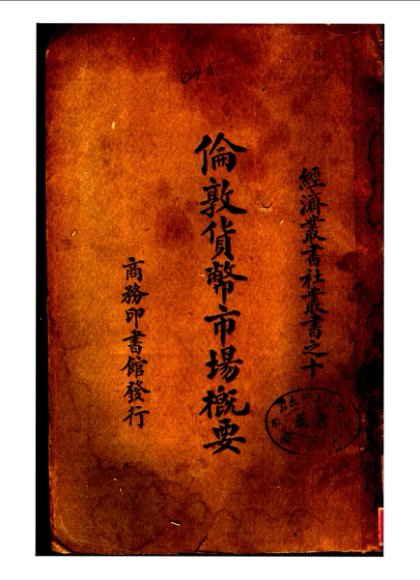 經濟叢書社叢書之十
倫敦貨幣市場概要
商務印書館發行